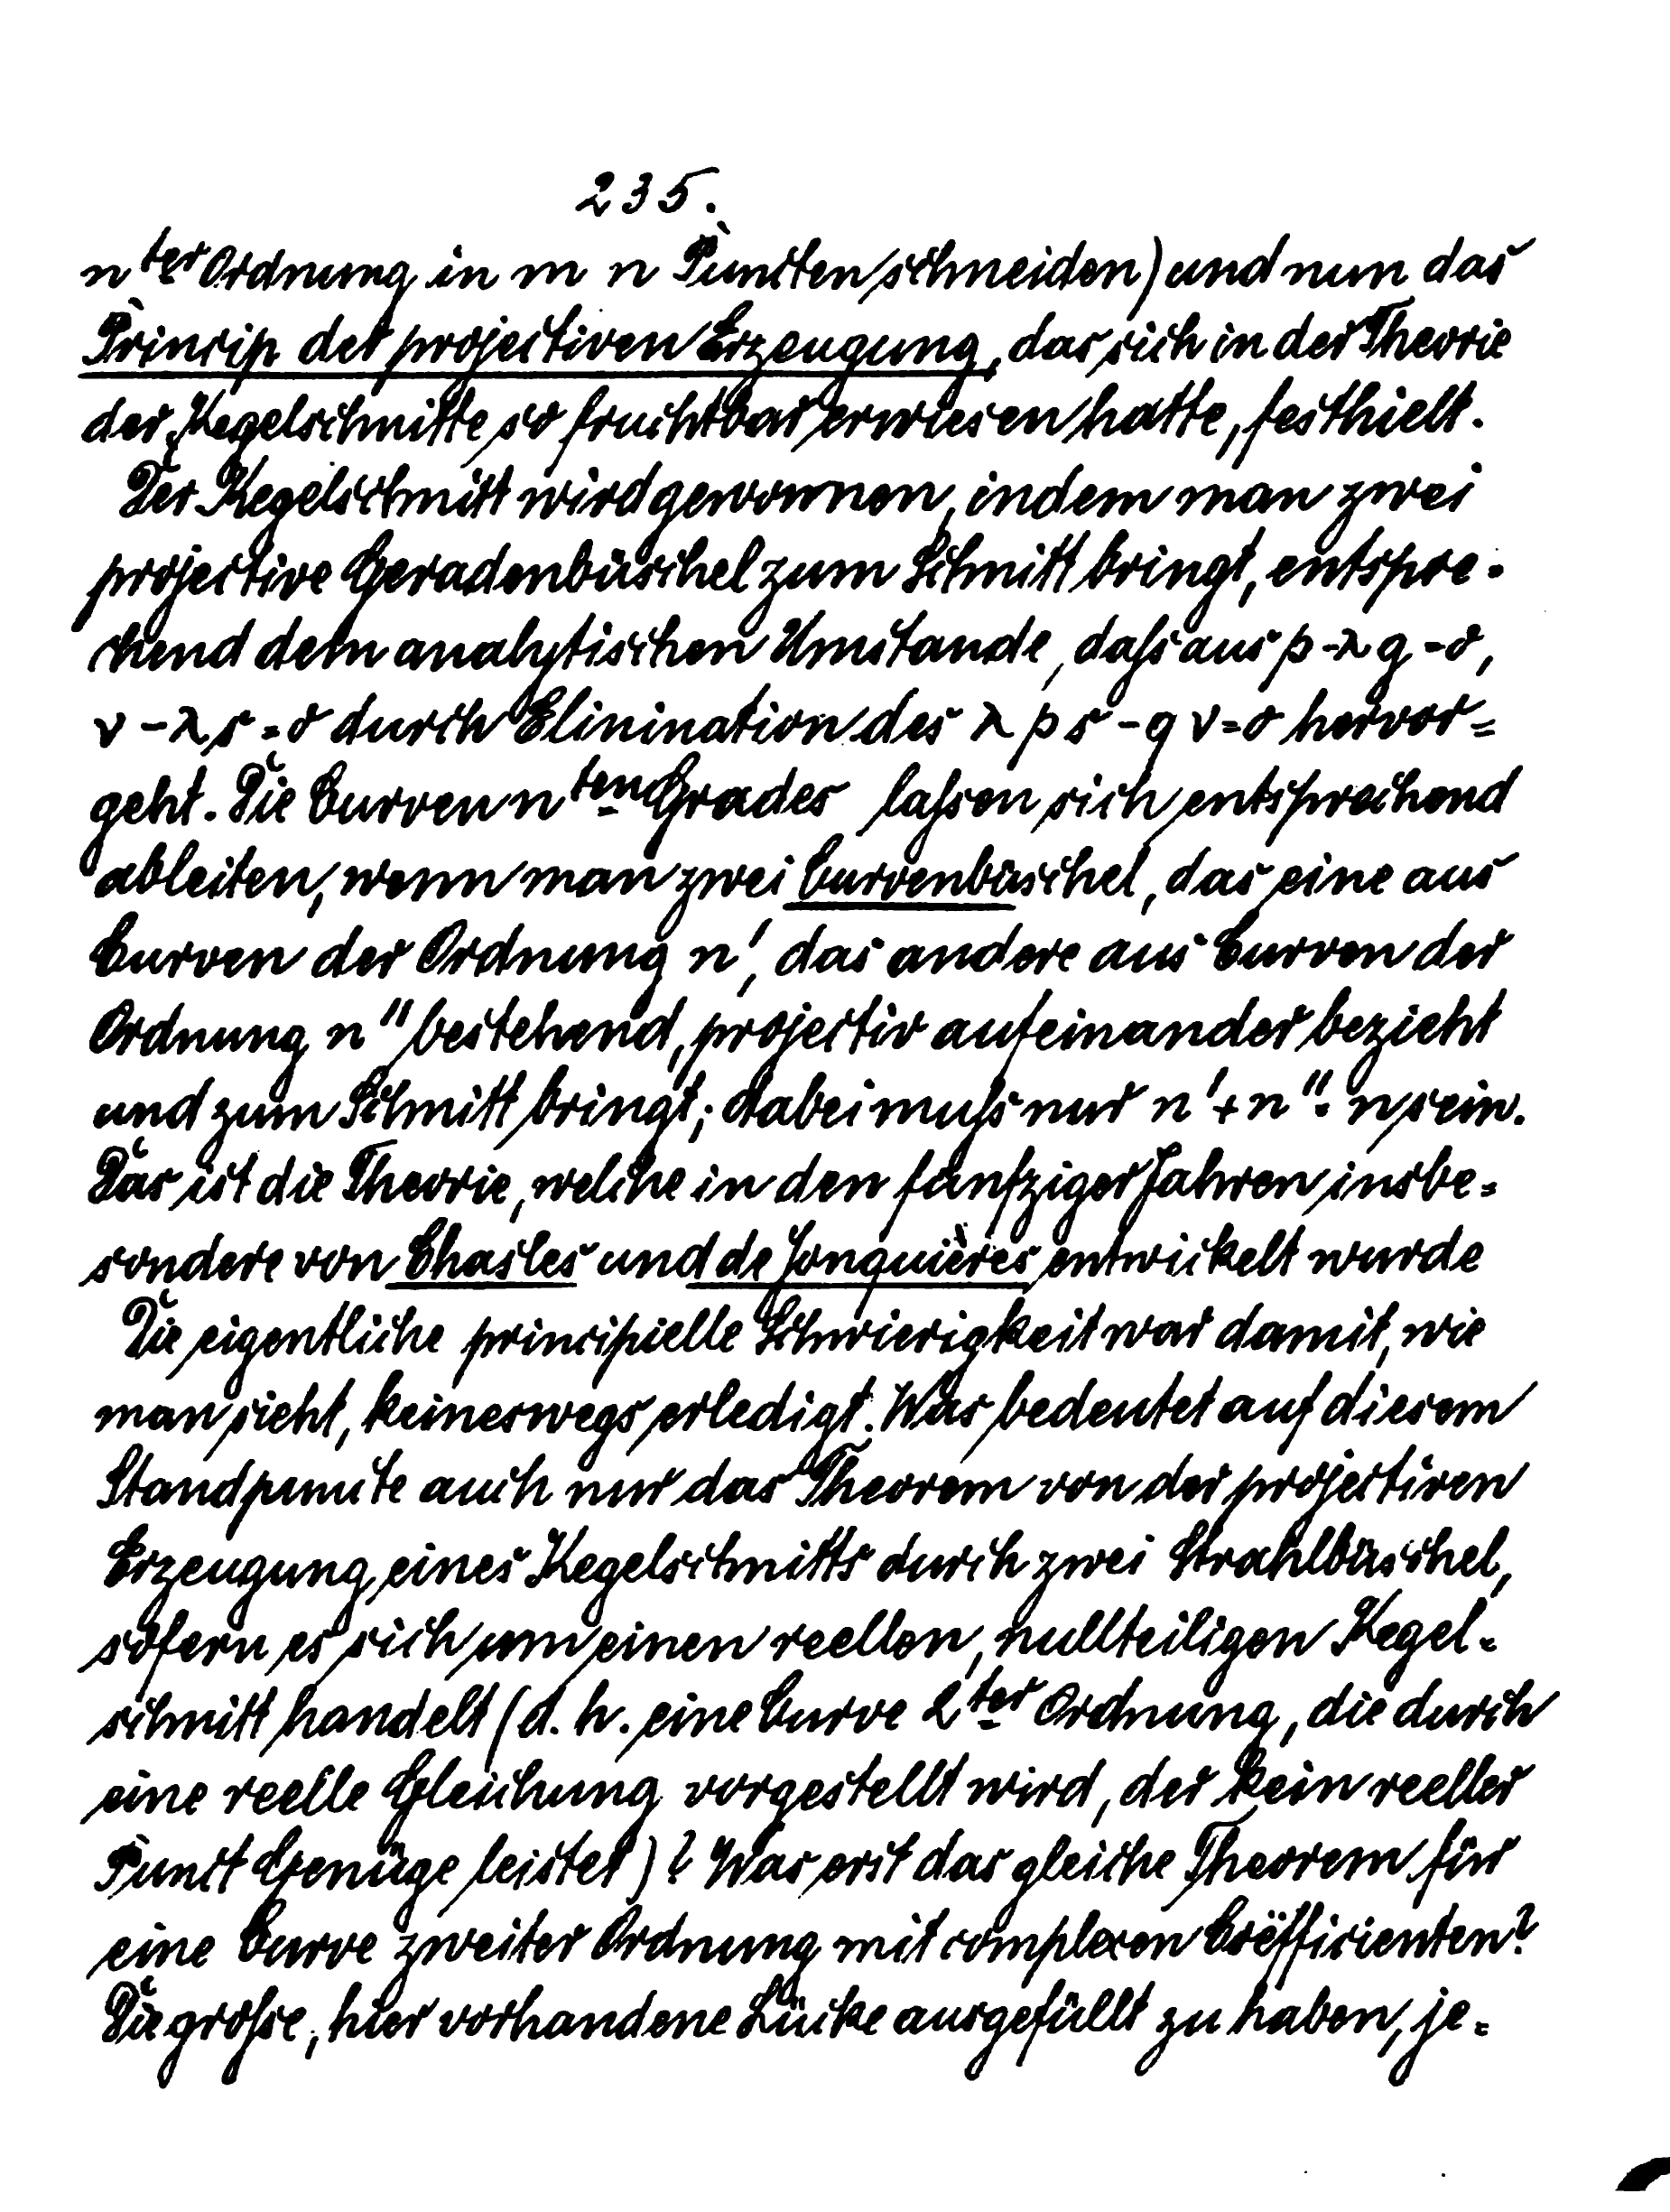 235.
n ter Ordnung in m n Puncten schneiden) und nun das
Princip der projectiven Erzeugung, das sich in der Theorie
der Kegelschnitte so fruchtbar erwiesen hatte, festhielt.
Der Kegelschnitt wird gewonnen, indem man zwei
projective Geradenbüschel zum Schnitt bringt, entspre-
chend dem analytischen Umstande, daſs aus p - λ q = 0,
r - λ s = 0 durch Elinination des λ p s - q r = 0 hervor=
geht. Die Curven n ten Grades laſsen sich entsprechend
ableiten, wenn man zwei Curvenbüschel, das eine aus
Curven der Ordnung n', das andere aus Curven der
Ordnung n" bestehend, projectiv aufeinander bezieht
und zum Schnitt bringt; dabei muſs nur n' + n" = n sein.
Das ist die Theorie, welche in den fünfziger Jahren insbe=
sondere von Chasles und de Jonquières entwickelt wurde
Die eigentliche principielle Schwierigkeit war damit, wie
man sieht, keineswegs erledigt. Was bedeutet auf diesem
Standpuncte auch nur das Theorem von der projectiven
Erzeugung eines Kegelschnitts durch zwei Strahlbüschel,
sofern es sich um einen reellen, nullteiligen Kegel=
schnitt handelt (d. h. eine Curve 2 ter Ordnung, die durch
eine reelle Gleichung vorgestellt wird, der kein reeller
Punct Genüge leistet)? Was erst das gleiche Theorem für
eine Curve zweiter Ordnung mit complexen Coëfficienten?
Die groſse, hier vorhandene Lücke ausgefüllt zu haben, je=